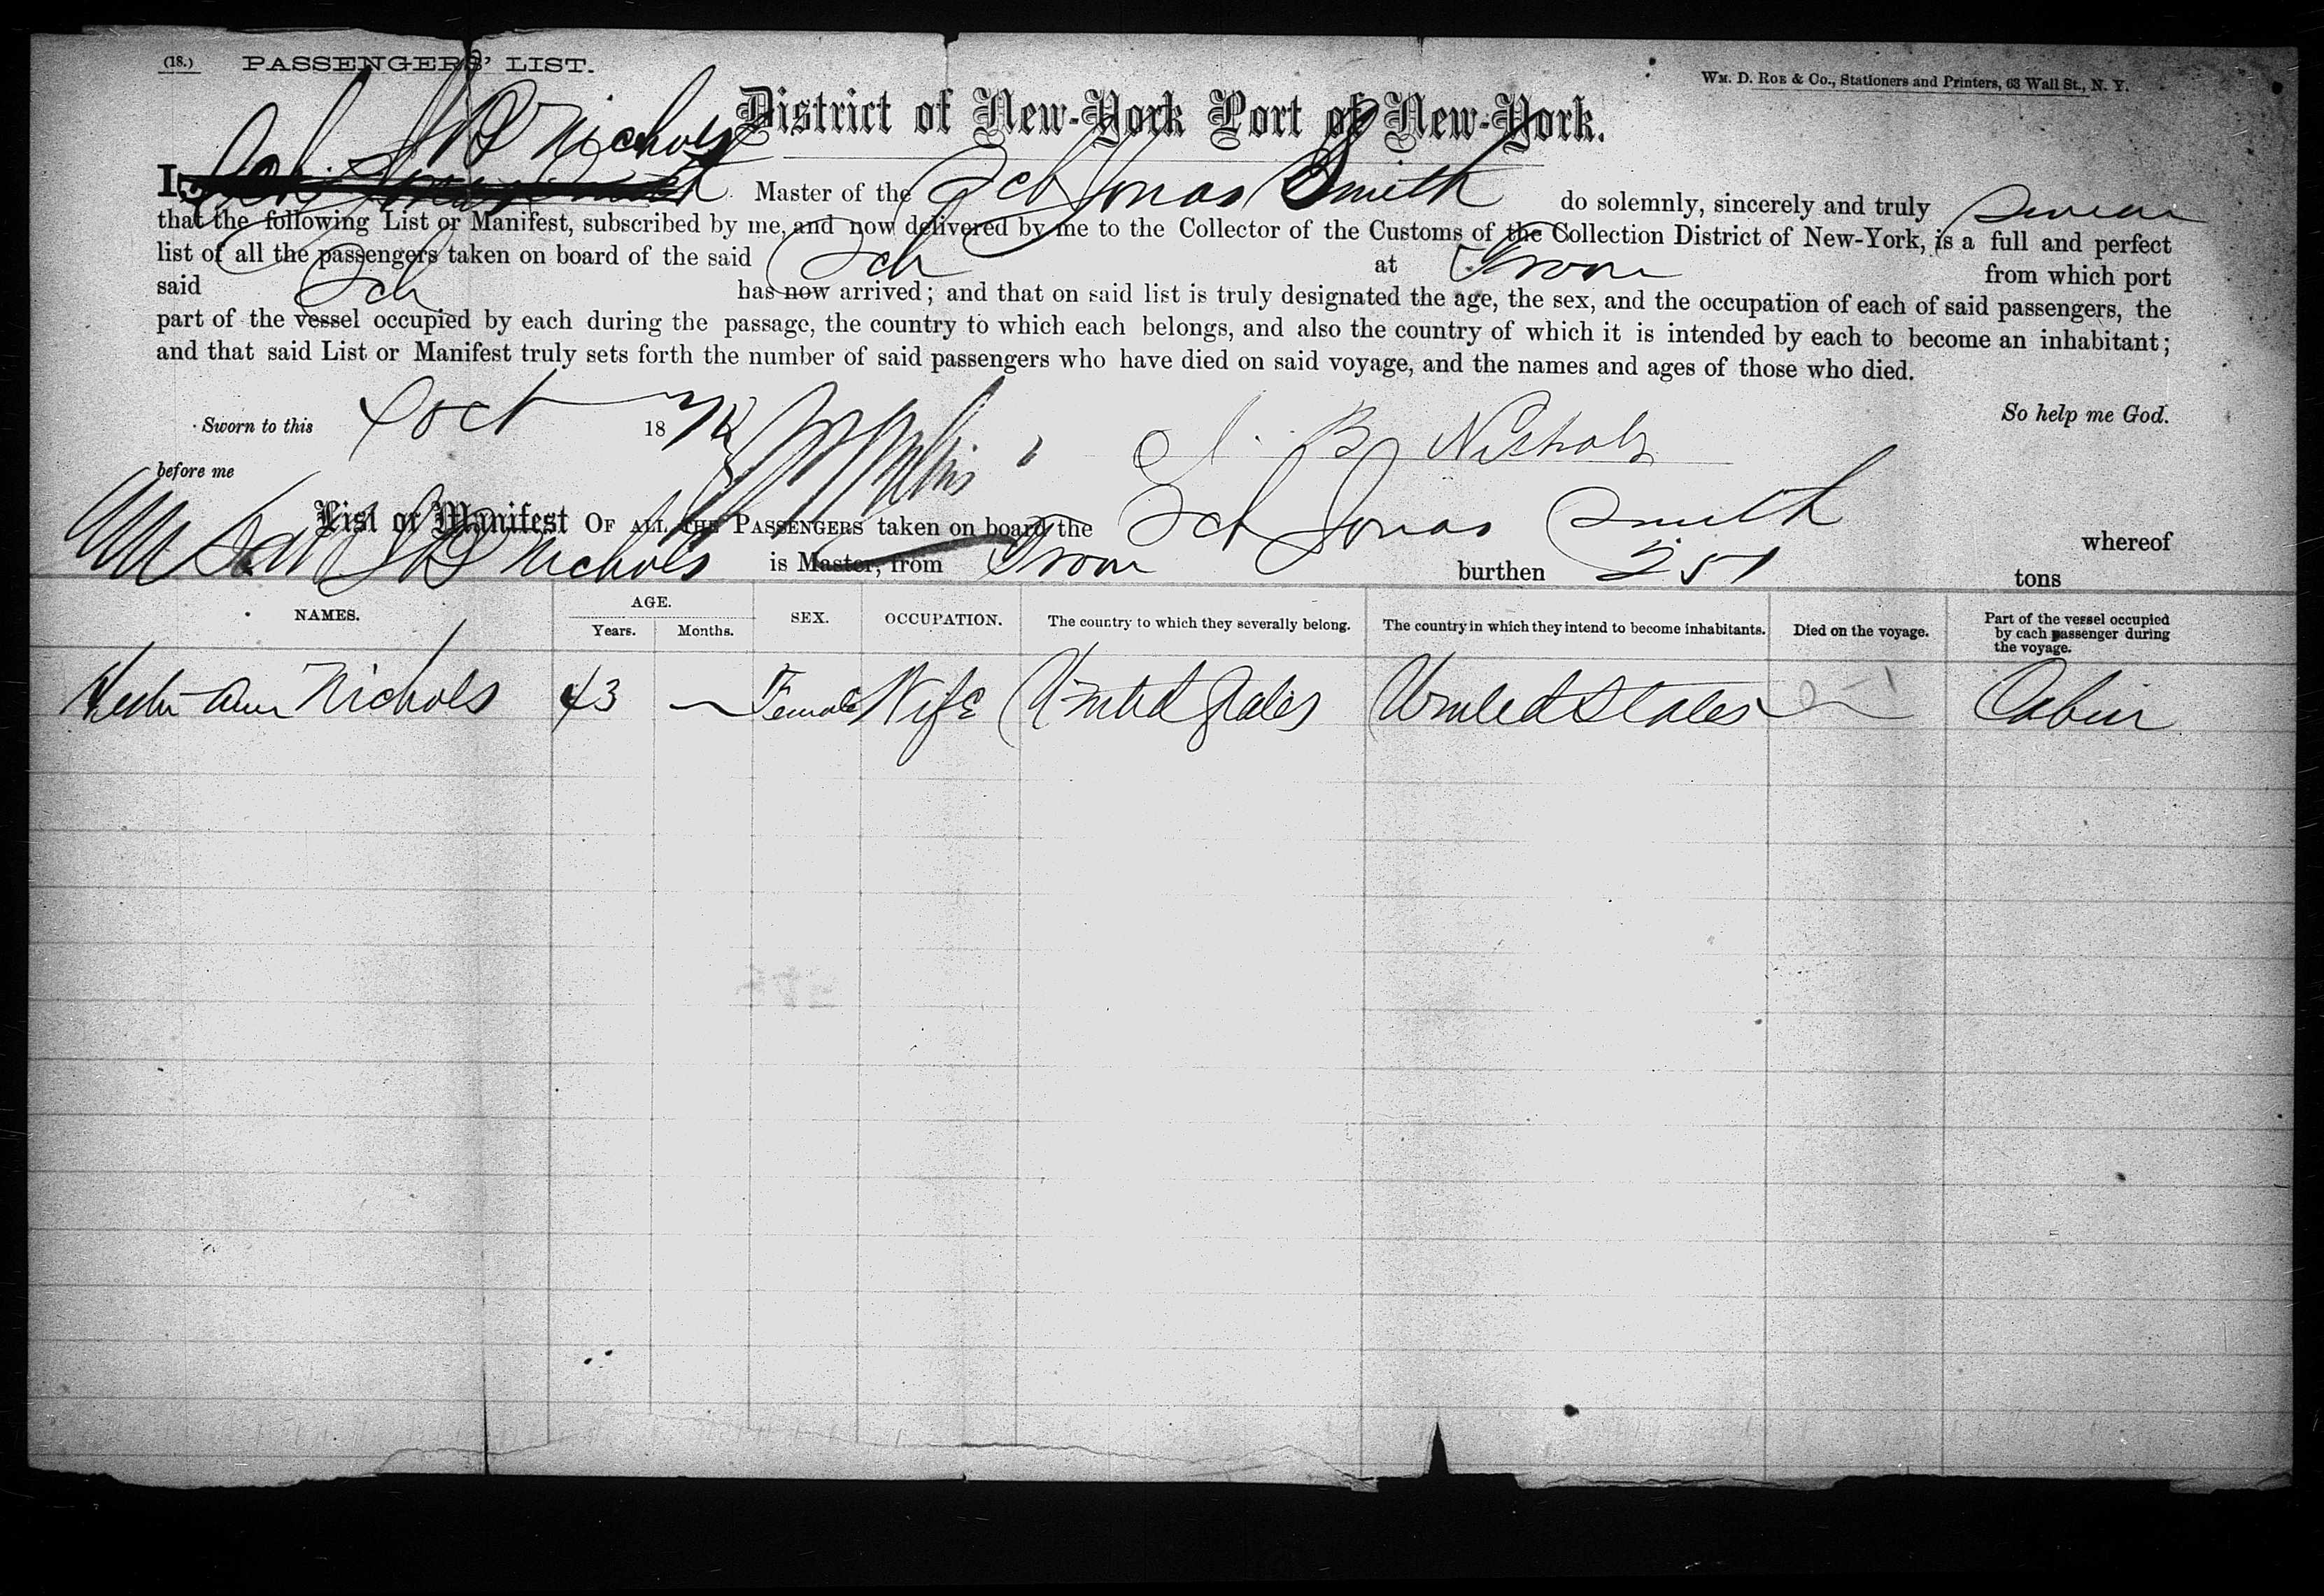 (18.) PASSENGERS' LIST.
WM. D. ROE & CO., Stationers and Printers, 63 Wall St., N. Y.
District of New-York Port of New-York.
B Nichols
I, Master of the Sch Jonas Smith do solemnly, sincerely and truly swear
that the following List or Manifest, subscribed by me, and now delivered by me to the Collector of the Customs of the Collection District of New-York, is a full and perfect
list of all the passengers taken on board of the said Sch at from which port
said Sch has now arrived; and that on said list is truly designated the age, the sex, and the occupation of each of said passengers, the
part of the vessel occupied by each during the passage, the country to which each belongs, and also the country of which it is intended by each to become an inhabitant;
and that said List or Manifest truly sets forth the number of said passengers who have died on said voyage, and the names and ages of those who died.
Sworn to this Oct 18 So help me God.
B Nichols
before me
List or Manifest OF ALL THE PASSENGERS taken on board the Sch Jonas Smith whereof
B Nichols is Master, from burthen 251 tons
NAMES. AGE. SEX. OCCUPATION. The country to which they severally belong. The country in which they intend to become inhabitants. Died on the voyage. Part of the vessel occupied by each passenger during the voyage.
Years. Months.
Ann Nichols 43 — Female Wife United States United States Cabin